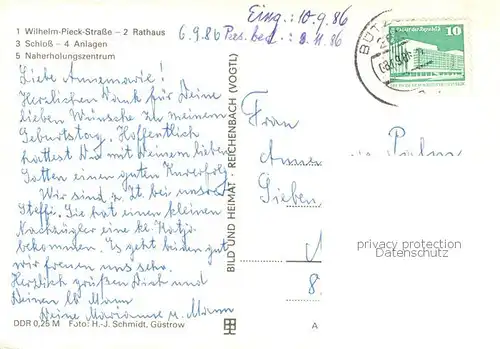 1 Wilhelm-Pieck-Straße – 2 Rathaus
3 Schloß – 4 Anlagen
5 Naherholungszentrum
Eing.: 10.9.86
6.9.86 Pas. bea.: 8.11.86
Liebe Annemarie!
Herzlichen Dank für Deine
lieben Wünsche zu meinem
Geburtstag. Hoffentlich
hattest Du mit Deinem lieben
Gatten einen guten Kurerfolg.
Wir sind z. Zt bei unsrer
Steffi. Sie hat einen kleinen
Nachzügler eine kl. Katja
bekommen. Es geht beiden gut
wir freuen uns sehr.
Herzlich grüßen Dich und
Deinen lb Mann
Deine Marianne u. Mann
DDR 0,25 M Foto: H.-J. Schmidt, Güstrow
BILD UND HEIMAT REICHENBACH (VOGTL)
A
BÜTZ
10
Frau
Palm
privacy protection
Datenschutz
8.